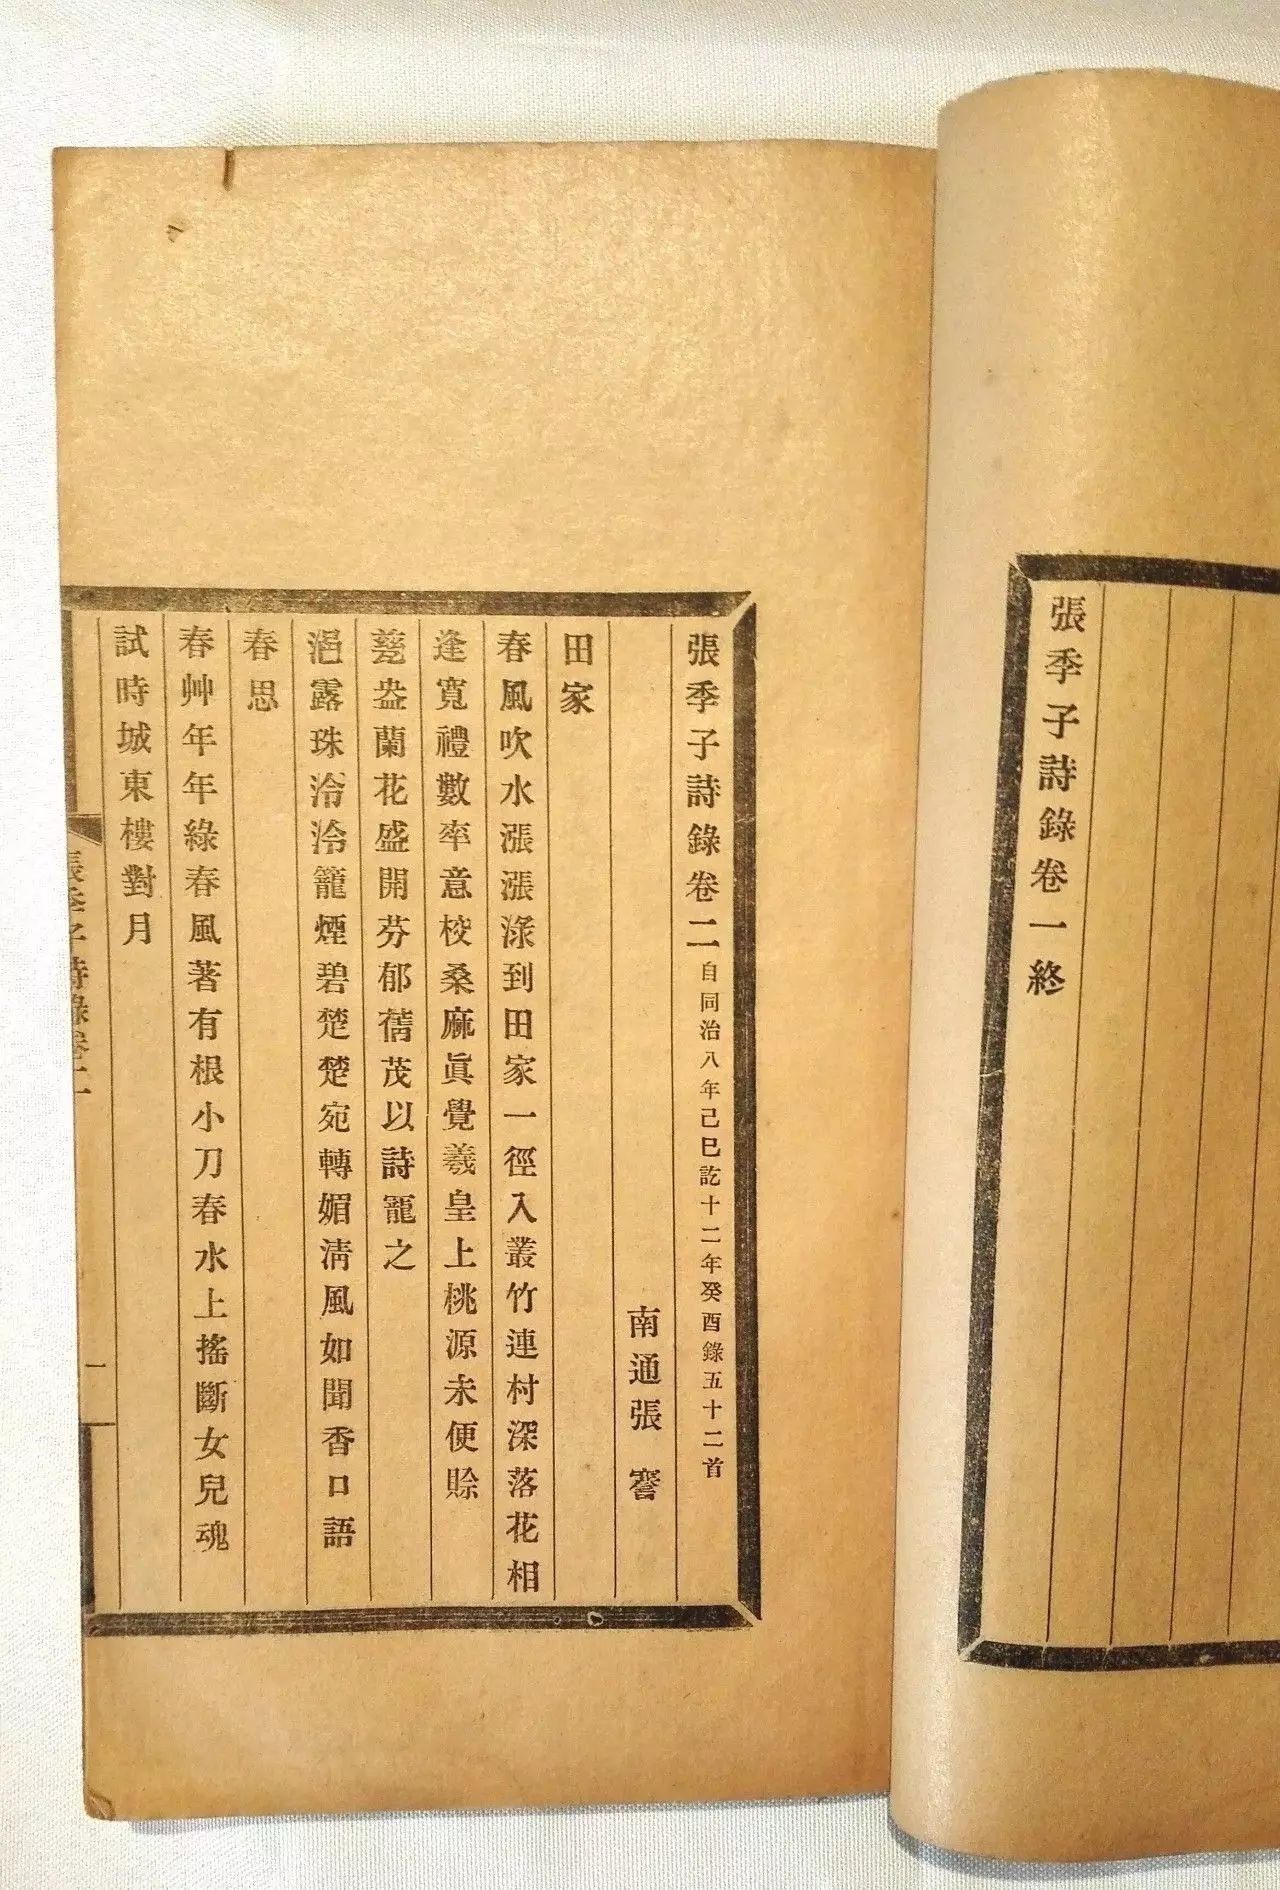 張季子詩錄卷一終
張季子詩錄卷二自同治八年己巳訖十二年癸酉錄五十二首
南通張 謇
田家
春風吹水漲漲淥到田家一徑入叢竹連村深落花相
逢寬禮數率意校桑麻眞覺羲皇上桃源未便賒
甆盎蘭花盛開芬郁蒨茂以詩寵之
浥露珠泠泠籠煙碧楚楚宛轉媚淸風如聞香口語
春思
春艸年年綠春風著有根小刀春水上搖斷女兒魂
試時城東樓對月
張季子詩錄卷二
一